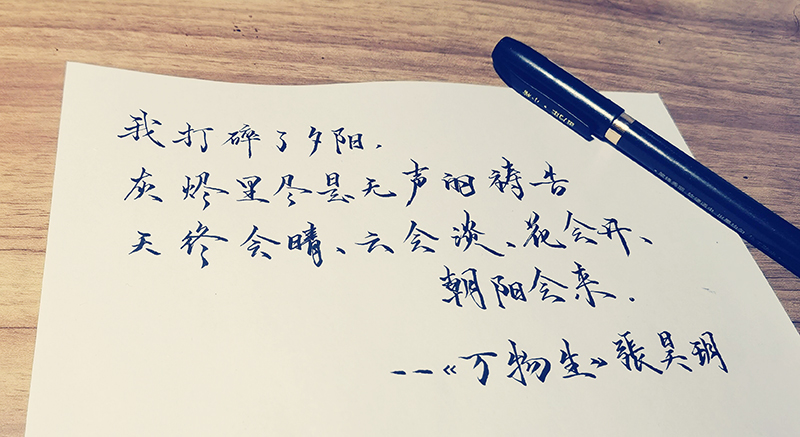 我打碎了夕阳.
灰烬里尽是无声的祷告
天终会晴、云会淡、花会开、
朝阳会来.
--《万物生》張昊玥